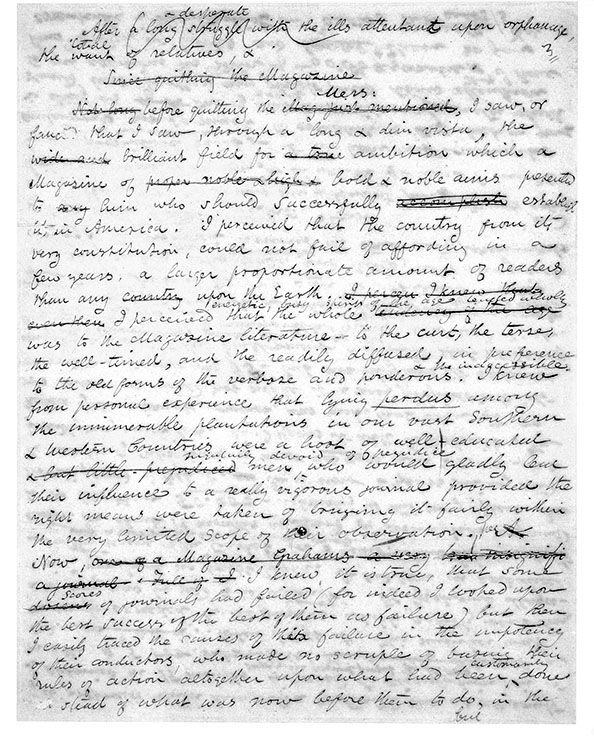 & desperate
After (a long) struggle with the ills attendant upon orphanage,
total 3
the want of relatives, &
Since quitting the Magazine
Mess:
Not long before quitting the Mag: just mentioned, I saw, or
fancied that I saw, through a long & dim vista, the
wide and brilliant field for a true ambition which a
Magazine of proper noble & high & bold & noble aims presented
to any him who should successfully accomplish establish
it, in America. I perceived that the country from its
very constitution, could not fail of affording in a
few years, a larger proportionate amount of readers
than any country upon the Earth. I perceived I knew that
energetic, busy spirit of the age tended wholly
even then I perceived that the whole tendency of the age
was to the Magazine literature — to the curt, the terse,
the well-timed, and the readily diffused, in preference
& the inaccessible
to the old forms of the verbose and ponderous. I knew
from personal experience that lying perdus among
the innumerable plantations in our vast Southern
& Western Countries were a host of well-educated
singularly devoid of prejudice
& but little prejudiced men, who would gladly lend
their influence to a really vigorous journal provided the
right means were taken of bringing it fairly within
the very limited scope of their observation.
Now, one of a Magazine Grahams a very
a journal full of I. I knew, it is true, that some
scores
dozens of journals had failed (for indeed I looked upon
the best success of the best of them as failure) but then
I easily traced the causes of their failure in the impotency
of their conductors, who made no scruple of basing their
customarily
rules of action altogether upon what had been done
instead of what was now before them to do, in the
but